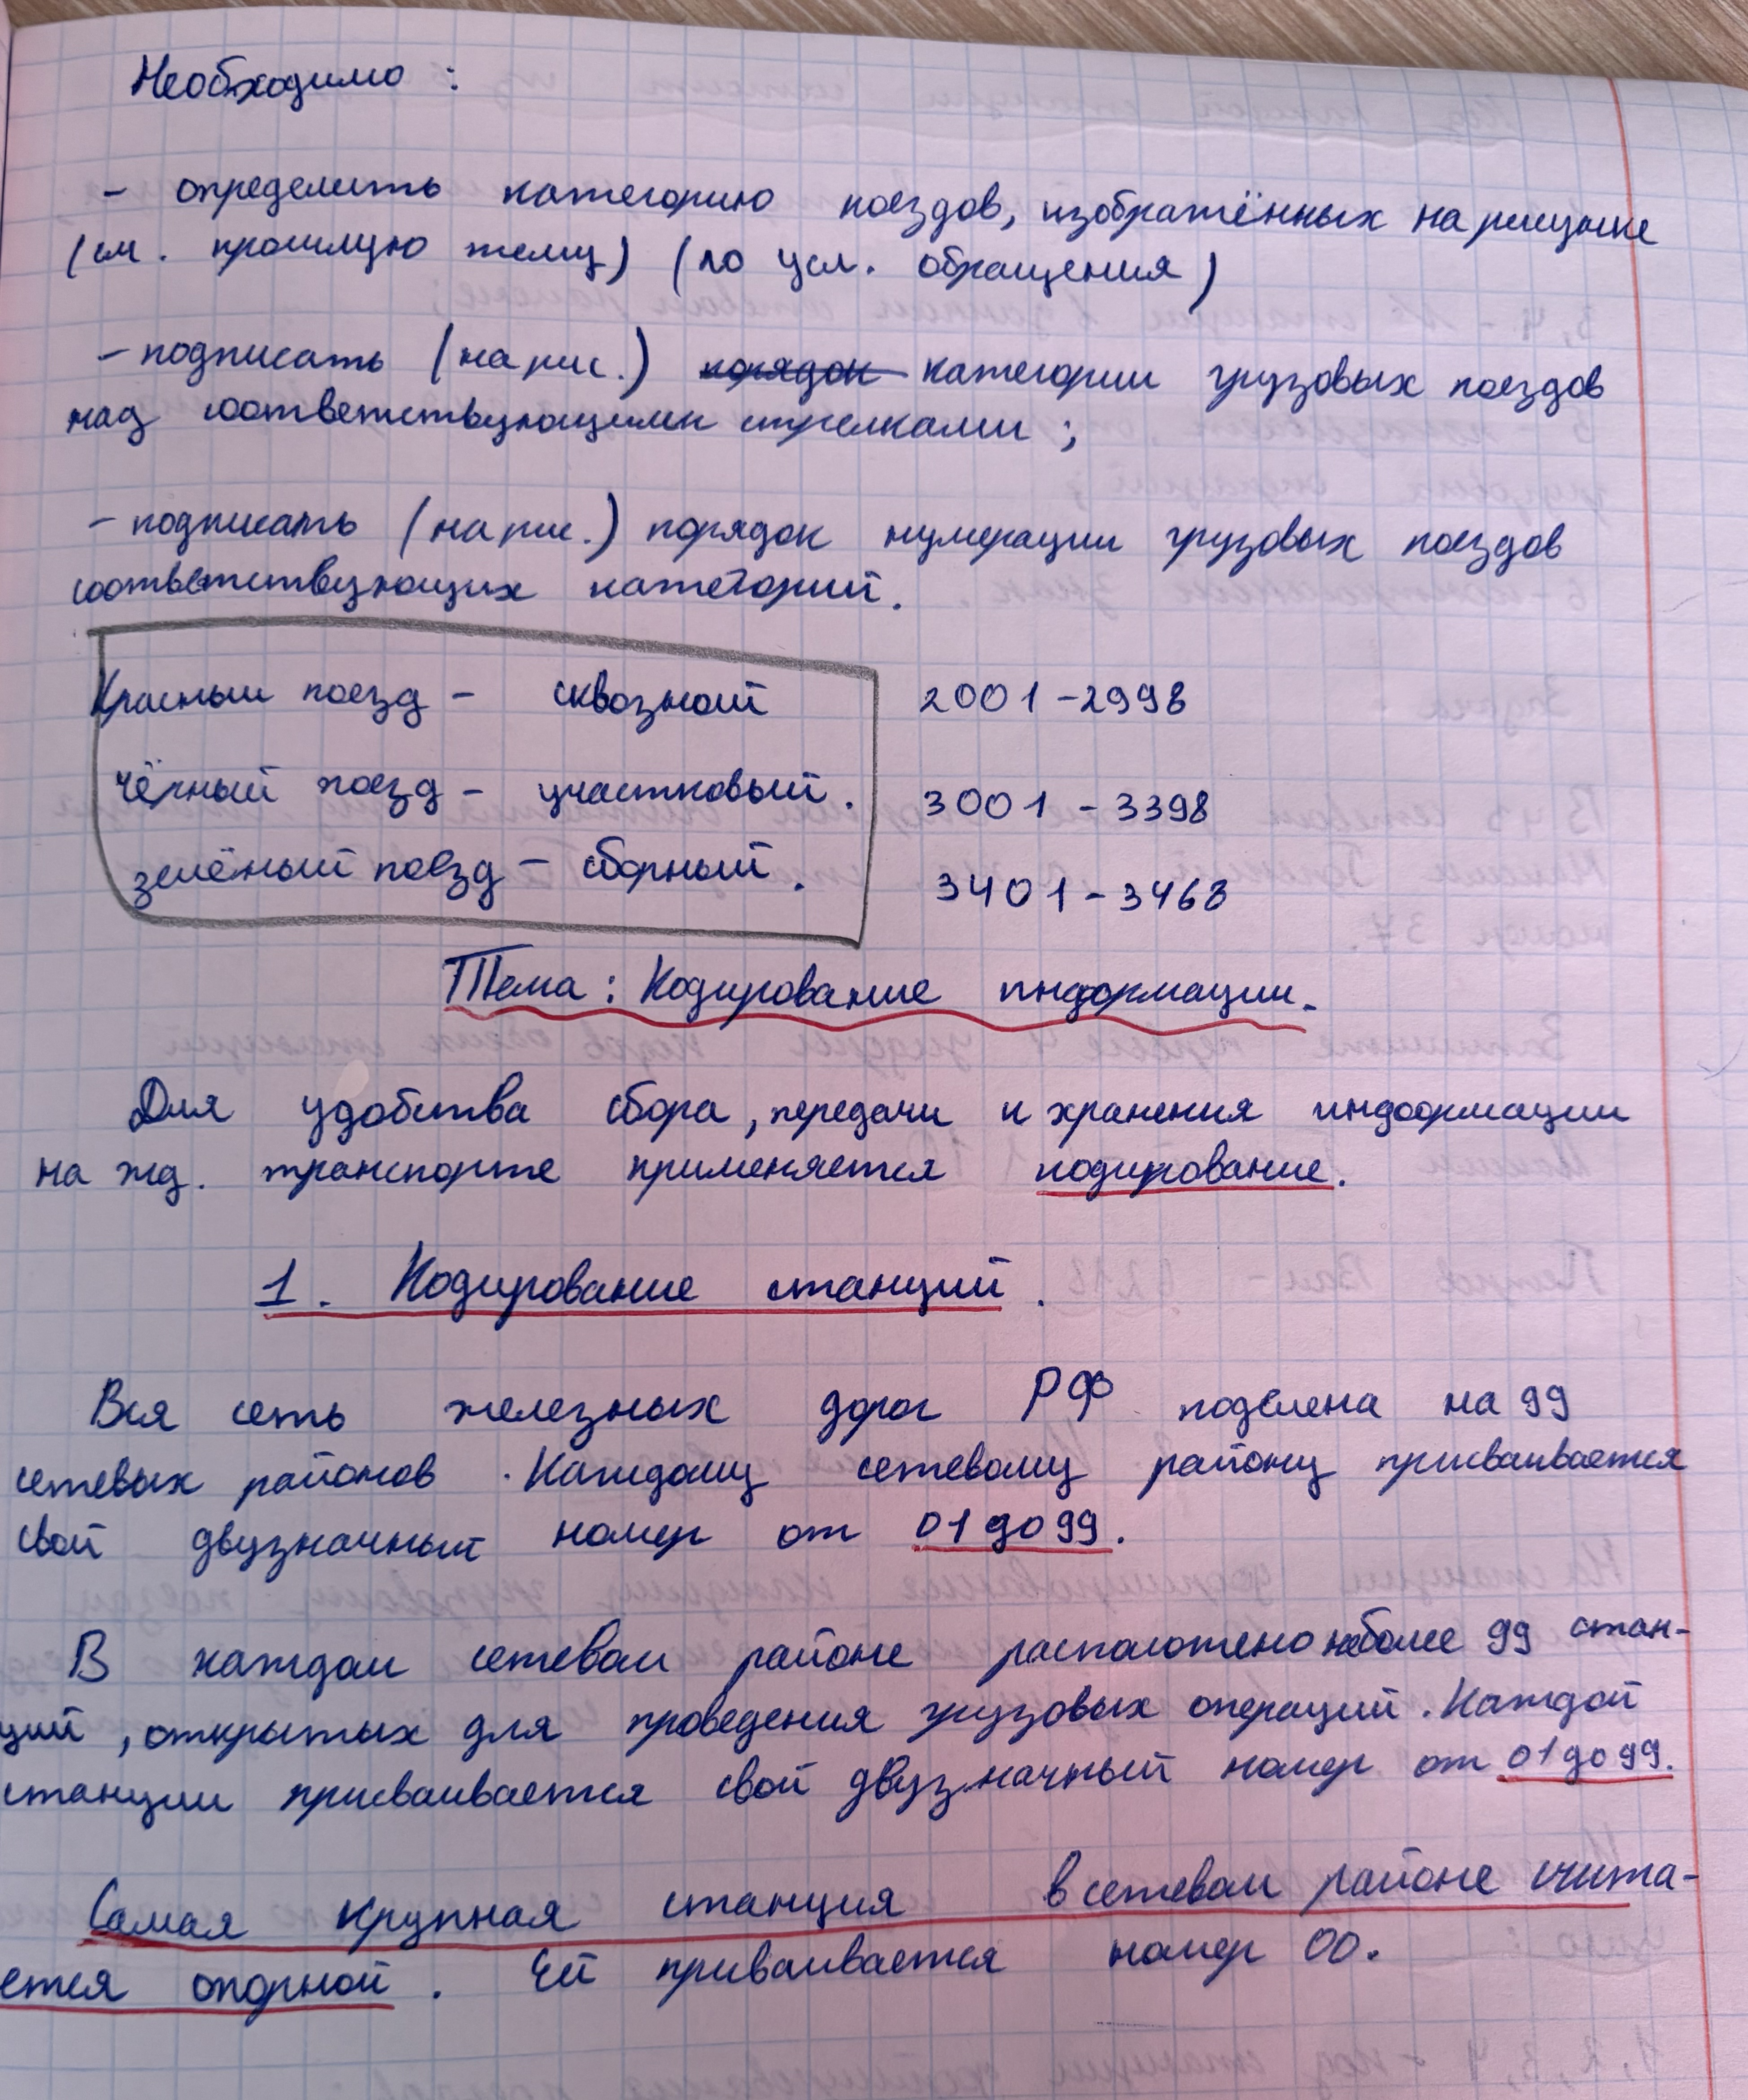 Необходимо:
- определить категорию поездов, изображённых на рисунке
(см. прошлую тему) (по усл. обращения)
- подписать (на рис.) порядок категории грузовых поездов
над соответствующими стрелками;
- подписать (на рис.) порядок нумерации грузовых поездов
соответствующих категорий.
Красный поезд - сквозной 2001-2998
чёрный поезд - участковый. 3001-3398
зелёный поезд - сборный. 3401-3468
Тема: Кодирование информации.
Для удобства сбора, передачи и хранения информации
на жд. транспорте применяется кодирование.
1. Кодирование станций.
Вся сеть железных дорог РФ поделена на 99
сетевых районов. Каждому сетевому району присваивается
свой двузначный номер от 01 до 99.
В каждом сетевом районе расположено не более 99 стан-
ций, открытых для проведения грузовых операций. Каждой
станции присваивается свой двузначный номер от 01 до 99.
Самая крупная станция в сетевом районе счита-
ется опорной. Ей приваивается номер 00.